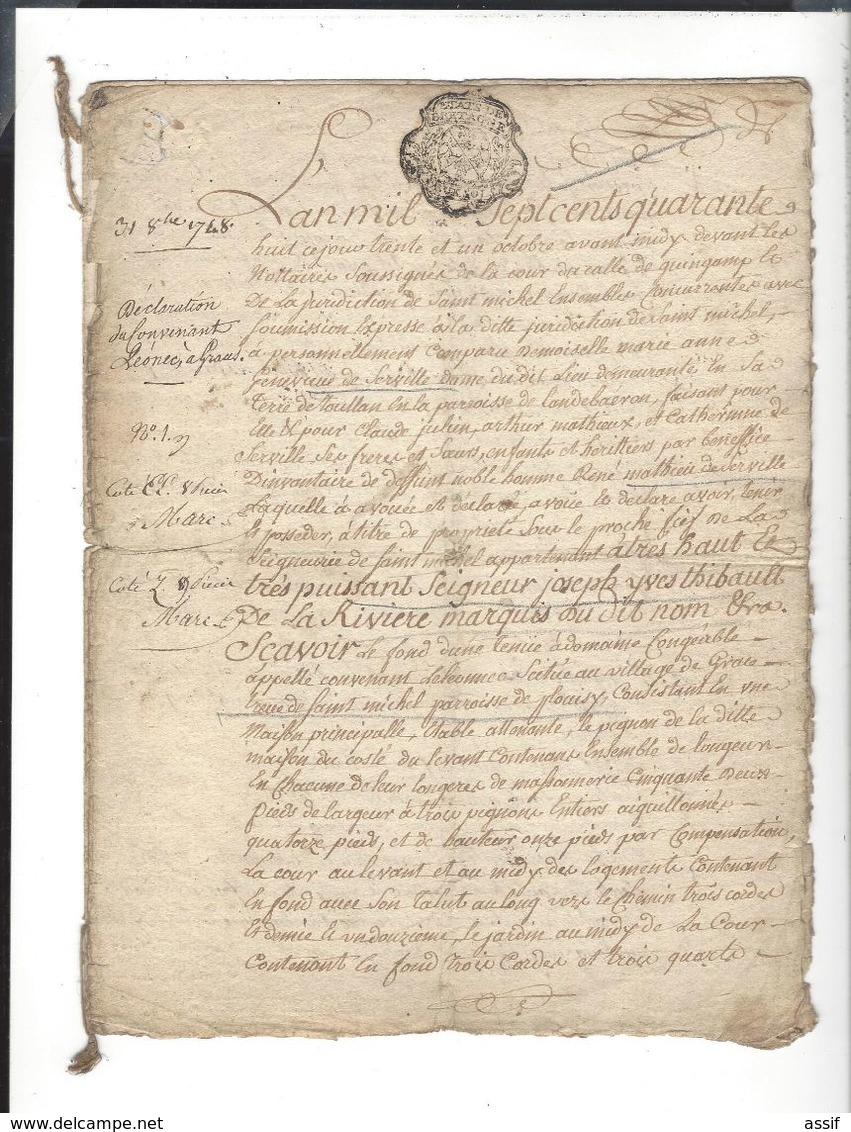 ETATS DE
BRETAGNE
L'an mil Sept cents quarante
31 8bre 1748.
huit ce jour trente et un octobre avant midy devant les
Nottaires Soussignés de la cour du de guingamp &
De La juridiction de Saint michel Ensembles Concurrentes avec
Déclaration
du Convenant
Leonec, à Graus.
Soumission Expresse à la ditte juridiction de saint michel,
à personnellement Comparu Demoiselle marie anne
Genevieue de Serville dame du dit Lieu demeurante En Sa
Terre de Toullan En la parroisse de Landebaeron, faisant pour
Elle & pour Claude julien, arthur mathieux, et Catherinne de
No. 1.
Serville Ses freres et Sœurs, enfants et hérittiers par beneffice
D'invantaire de deffunt noble homme René mathieu de Serville
Coté
Marc
Laquelle à avouée et déclaré, avoüe & declare avoir, tenir
& posseder, à titre de proprieté Sous le proche fief De La
Seigneurie de Saint michel appartenant à trés haut &
Coté 2
Marc
trés puissant Seigneur joseph yves thibault
De La Riviere marquis du dit nom &ra.
Scavoir Le fond d'une tenüe à domaine Congéable
appellé convenant Leleonnec Scitué au village de Grace
treue de Saint michel parroisse de plouisy, Consistant En vne
Maison principalle, Etable attenante, le pignon de la ditte
maison du costé du levant Contenans Ensemble de longeur
En Chacune de leur longeres de massonnerie Cinquante Deux
pieds de largeur à trois pignons Entiers aiguillonnés
quatorze pieds, et de hauteur onze pieds par Compensation,
La cour au levant et au midy des logements Contenant
En fond auec Son Talut au long vers le Chemin trois cordes
& demie & vn douzième, le jardin au midy de La Cour
Contenant En fond trois Cordes et trois quarts
assif